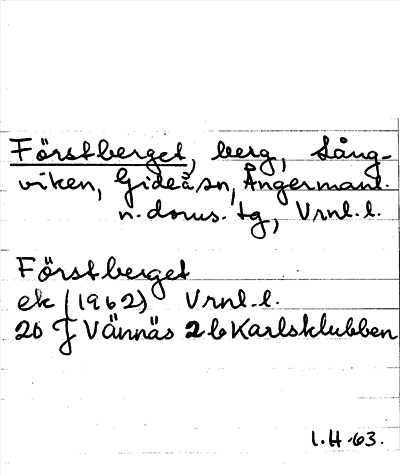 Förstberget, berg, Lång-
viken, Gideå sn, Ångermanl.
n. doms. tg, Vrnl. l.
Förstberget
ek (1962) Vrnl. l.
20 J Vännäs 2 b Karlsklubben
l. H. 63.